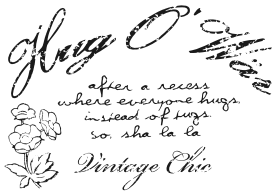 Hug O' War
after a recess
where everyone hugs
instead of tugs.
so, sha la la
Vintage Chic